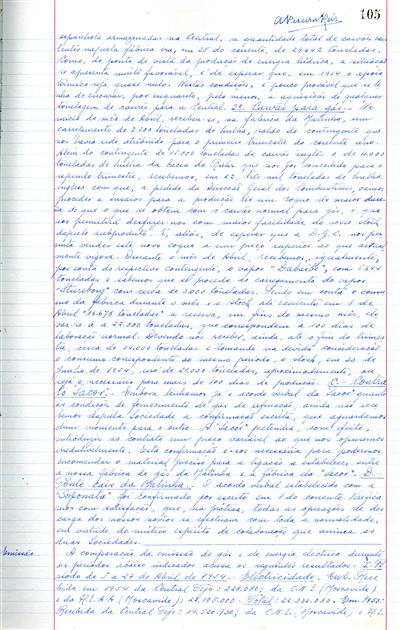 105
espanhola armazenadas na Central, a quantidade total de carvões exis-
tentes naquela fábrica era, em 25 do corrente, de 29.642 toneladas.
Como, do ponto de vista da produção de energia hídrica, a situação
se apresenta muito favorável, é de esperar que, em 1954 o apoio
térmico seja quase nulo. Nestas condições, é pouco provável que se te-
nha de encarar, por enquanto, pelo menos, a aquisição de qualquer
tonelagem de carvão para a Central. 2º. Carvão para gás: - No
início do mês de Abril, recebeu-se, na fábrica da Matinha, um
carregamento de 2.200 toneladas de hulha, saldo do contingente que
nos havia sido atribuído para o primeiro trimestre do corrente ano.
Além do contingente de toneladas de carvão inglês e de
toneladas de hulha da bacia do Ruhr que nos foi concedido para o
segundo trimestre, recebemos, em 22, três mil toneladas de hulha
inglesa com que, a pedido da Direcção Geral dos Combustíveis, vamos
proceder a ensaios para a produção de um coque de maior dure-
za do que o que se obtém com o carvão normal para gás, o que
nos permitirá desfazer-nos com maior facilidade do nosso stock
daquele subproduto. É, aliás, de esperar que a D.G.C. nos per-
mita vender este novo coque a um preço superior ao que actual-
mente vigora. Durante o mês de Abril, recebemos, igualmente,
por conta do respectivo contingente, o vapor com
toneladas e sabemos que se procede ao carregamento do vapor
com cerca de toneladas. Tendo em conta o consu-
mo da fábrica durante o mês e o stock ali existente em 1 de
Abril a reserva, em fins do mesmo mês, ele-
var-se-á a 22.000 toneladas, que correspondem a 100 dias de
laboração normal. Devendo nós receber, ainda até o fim do trimes-
tre, cerca de toneladas e tomando na devida consideração
o consumo correspondente ao mesmo período, o stock, em 30 de
Junho de 1954, será de 21.000 toneladas, aproximadamente, ou
seja o necessário para mais de 100 dias de produção. C - Contra-
to Sacor: - Embora tenhamos já o acordo verbal da Sacor quanto
às condições de fornecimento de gás de refinação, ainda não rece-
bemos daquela Sociedade a confirmação escrita, que aguardamos
dum momento para o outro. A "Sacor" pretendia, com efeito,
introduzir no contrato um preço variável ao que nos opusemos
irredutivelmente. Esta confirmação é-nos necessária para podermos
encomendar o material preciso para a ligação a estabelecer, entre
a nossa fábrica de gás da Matinha e a fábrica da "Sacor". D -
Ponte Cais da Matinha: - O acordo verbal estabelecido com a
"Soponata" foi confirmado por escrito em 1 do corrente. Verifica-
mos com satisfação, que, na prática, todas as operações de des-
carga dos nossos navios se efectuam com toda a normalidade,
em virtude do mútuo espírito de colaboração que anima as
duas Sociedades.
Emissão A comparação da emissão de gás e de energia eléctrica durante
os períodos abaixo indicados acusa os seguintes resultados: - Pe-
ríodo de 1 a 27 de Abril de 1954. - Electricidade: kwh. Rece-
bida em 1954 da Central Tejo: da C.N.E. (Moscavide)
e da H.E.A.A. (Moscavide): Total: Em 1953:
Recebida da Central Tejo: 14.520.730; da C.N.E. (Moscavide) e H.E.